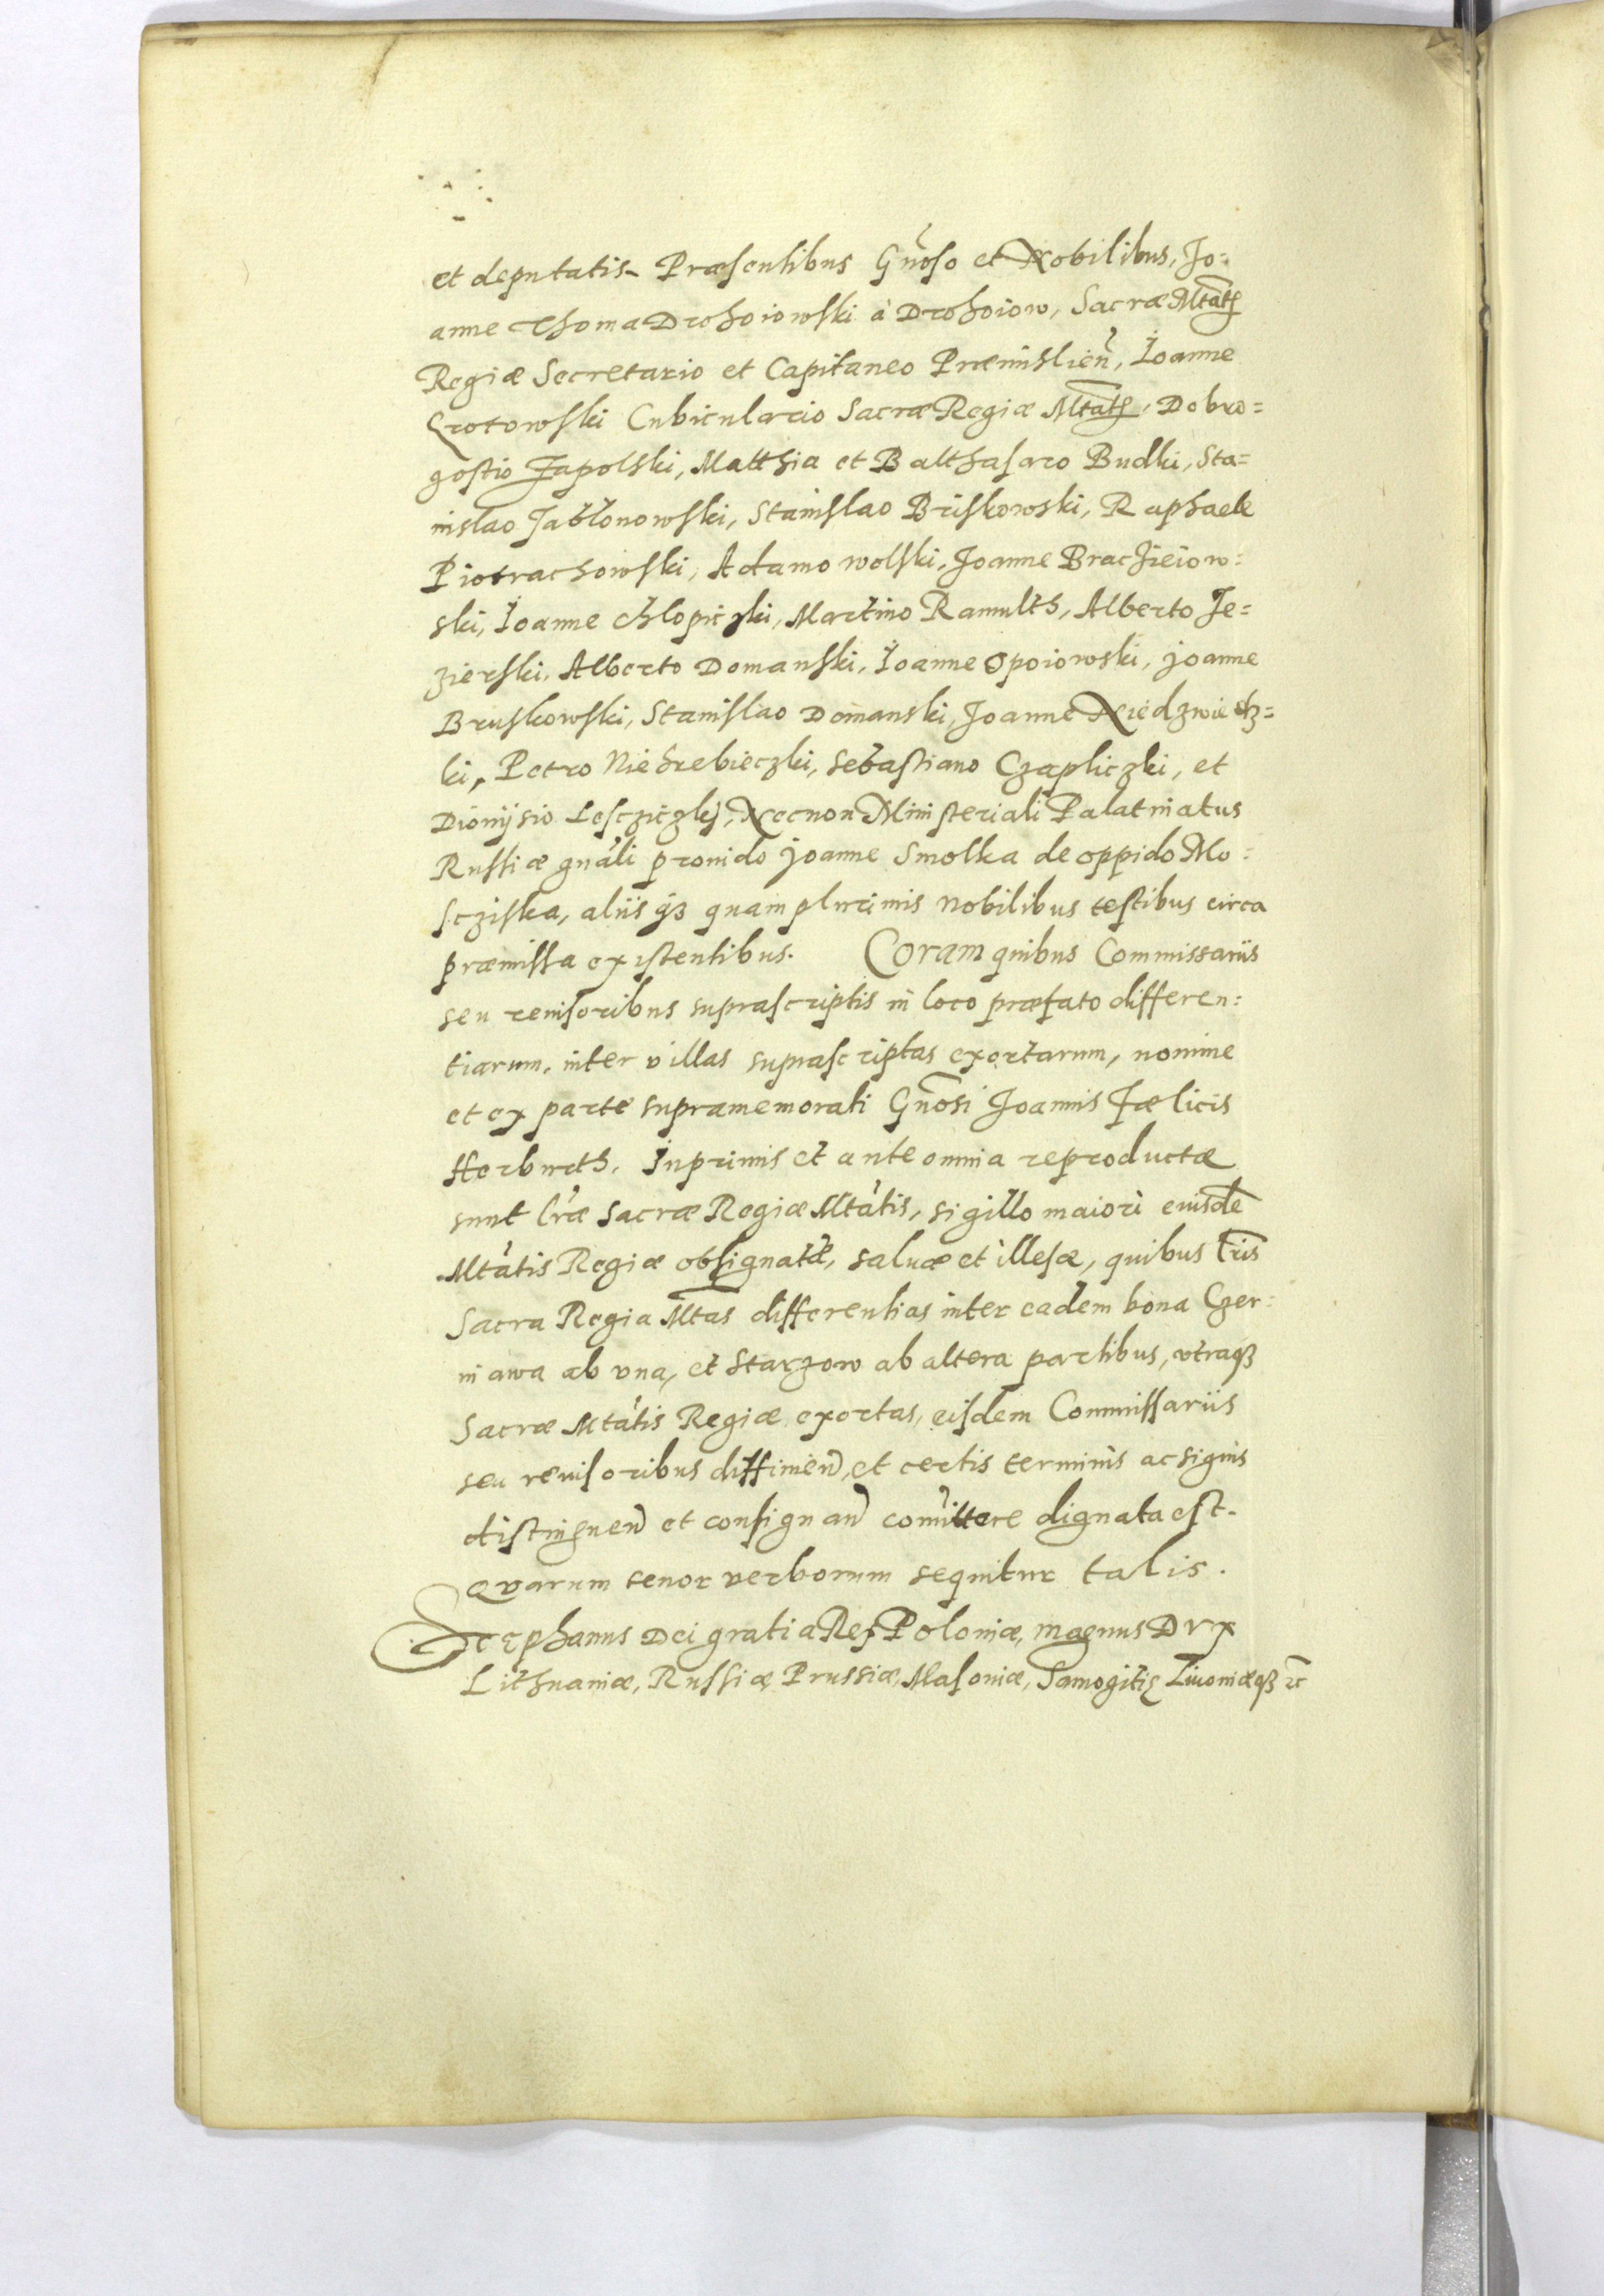 et deputatis. Præsentibus Gnoso et Nobilibus, Jo-
anne Thoma Drohoiowski à Drohoiow, Sacræ Mtatis
Regiæ Secretario et Capitaneo Præmislien, Ioanne
Crotowski Cubiculario Sacræ Regiæ Mtatis, Dobro=
gostio Zapolski, Matthia et Balthasaro Budki, Sta=
nislao Jablonowski, Stanislao Briskowski, Raphaele
Piotrachowski, Adamo wolski, Joanne Brachieiow=
ski, Ioanne Chlopiczki, Martino Ramulth, Alberto Je=
zierski, Alberto Domanski, Ioanne Opoiowski, Joanne
Bruskowski, Stanislao Domanski, Joanne Niedzwiedz=
ki, Petro Niehrebieczki, Sebastiano Czapliczki, et
Dionÿsio Lescziczkÿ, Necnon Ministeriali Palatinatus
Russiæ gnali prouido Joanne Smolka de oppido Mo=
scziska, aliisqȝ quam plurimis nobilibus testibus circa
præmissa existentibus. Coram quibus Commissariis
seu reuisoribus suprascriptis in loco præfato differen=
tiarum, inter villas suprascriptas exortarum, nomine
et ex parte supramemorati Gnosi Joannis Fælicis
Herburth. Inprimis et ante omnia reproductæ
sunt lræ Sacræ Regiæ Mtatis, sigillo maiori eiusdē
Mtatis Regiæ obsignatæ, saluæ et illesæ, quibus lris
Sacra Regia Mtas differentias inter eadem bona Czer=
niawa ab vna, et Starzow ab altera partibus, vtraqȝ
Sacræ Mtatis Regiæ exortas, eisdem Commissariis
seu reuisoribus diffinien, et certis terminis ac signis
distinguen et consignan comittere dignata est.
Qvarum tenor verborum sequitur talis.
Stephanus Dei gratia Rex Poloniæ, magnus Dvx
Lithuaniæ, Russiæ Prussiæ, Masoniæ, Samogitię Liuoniæqȝ ꝛc